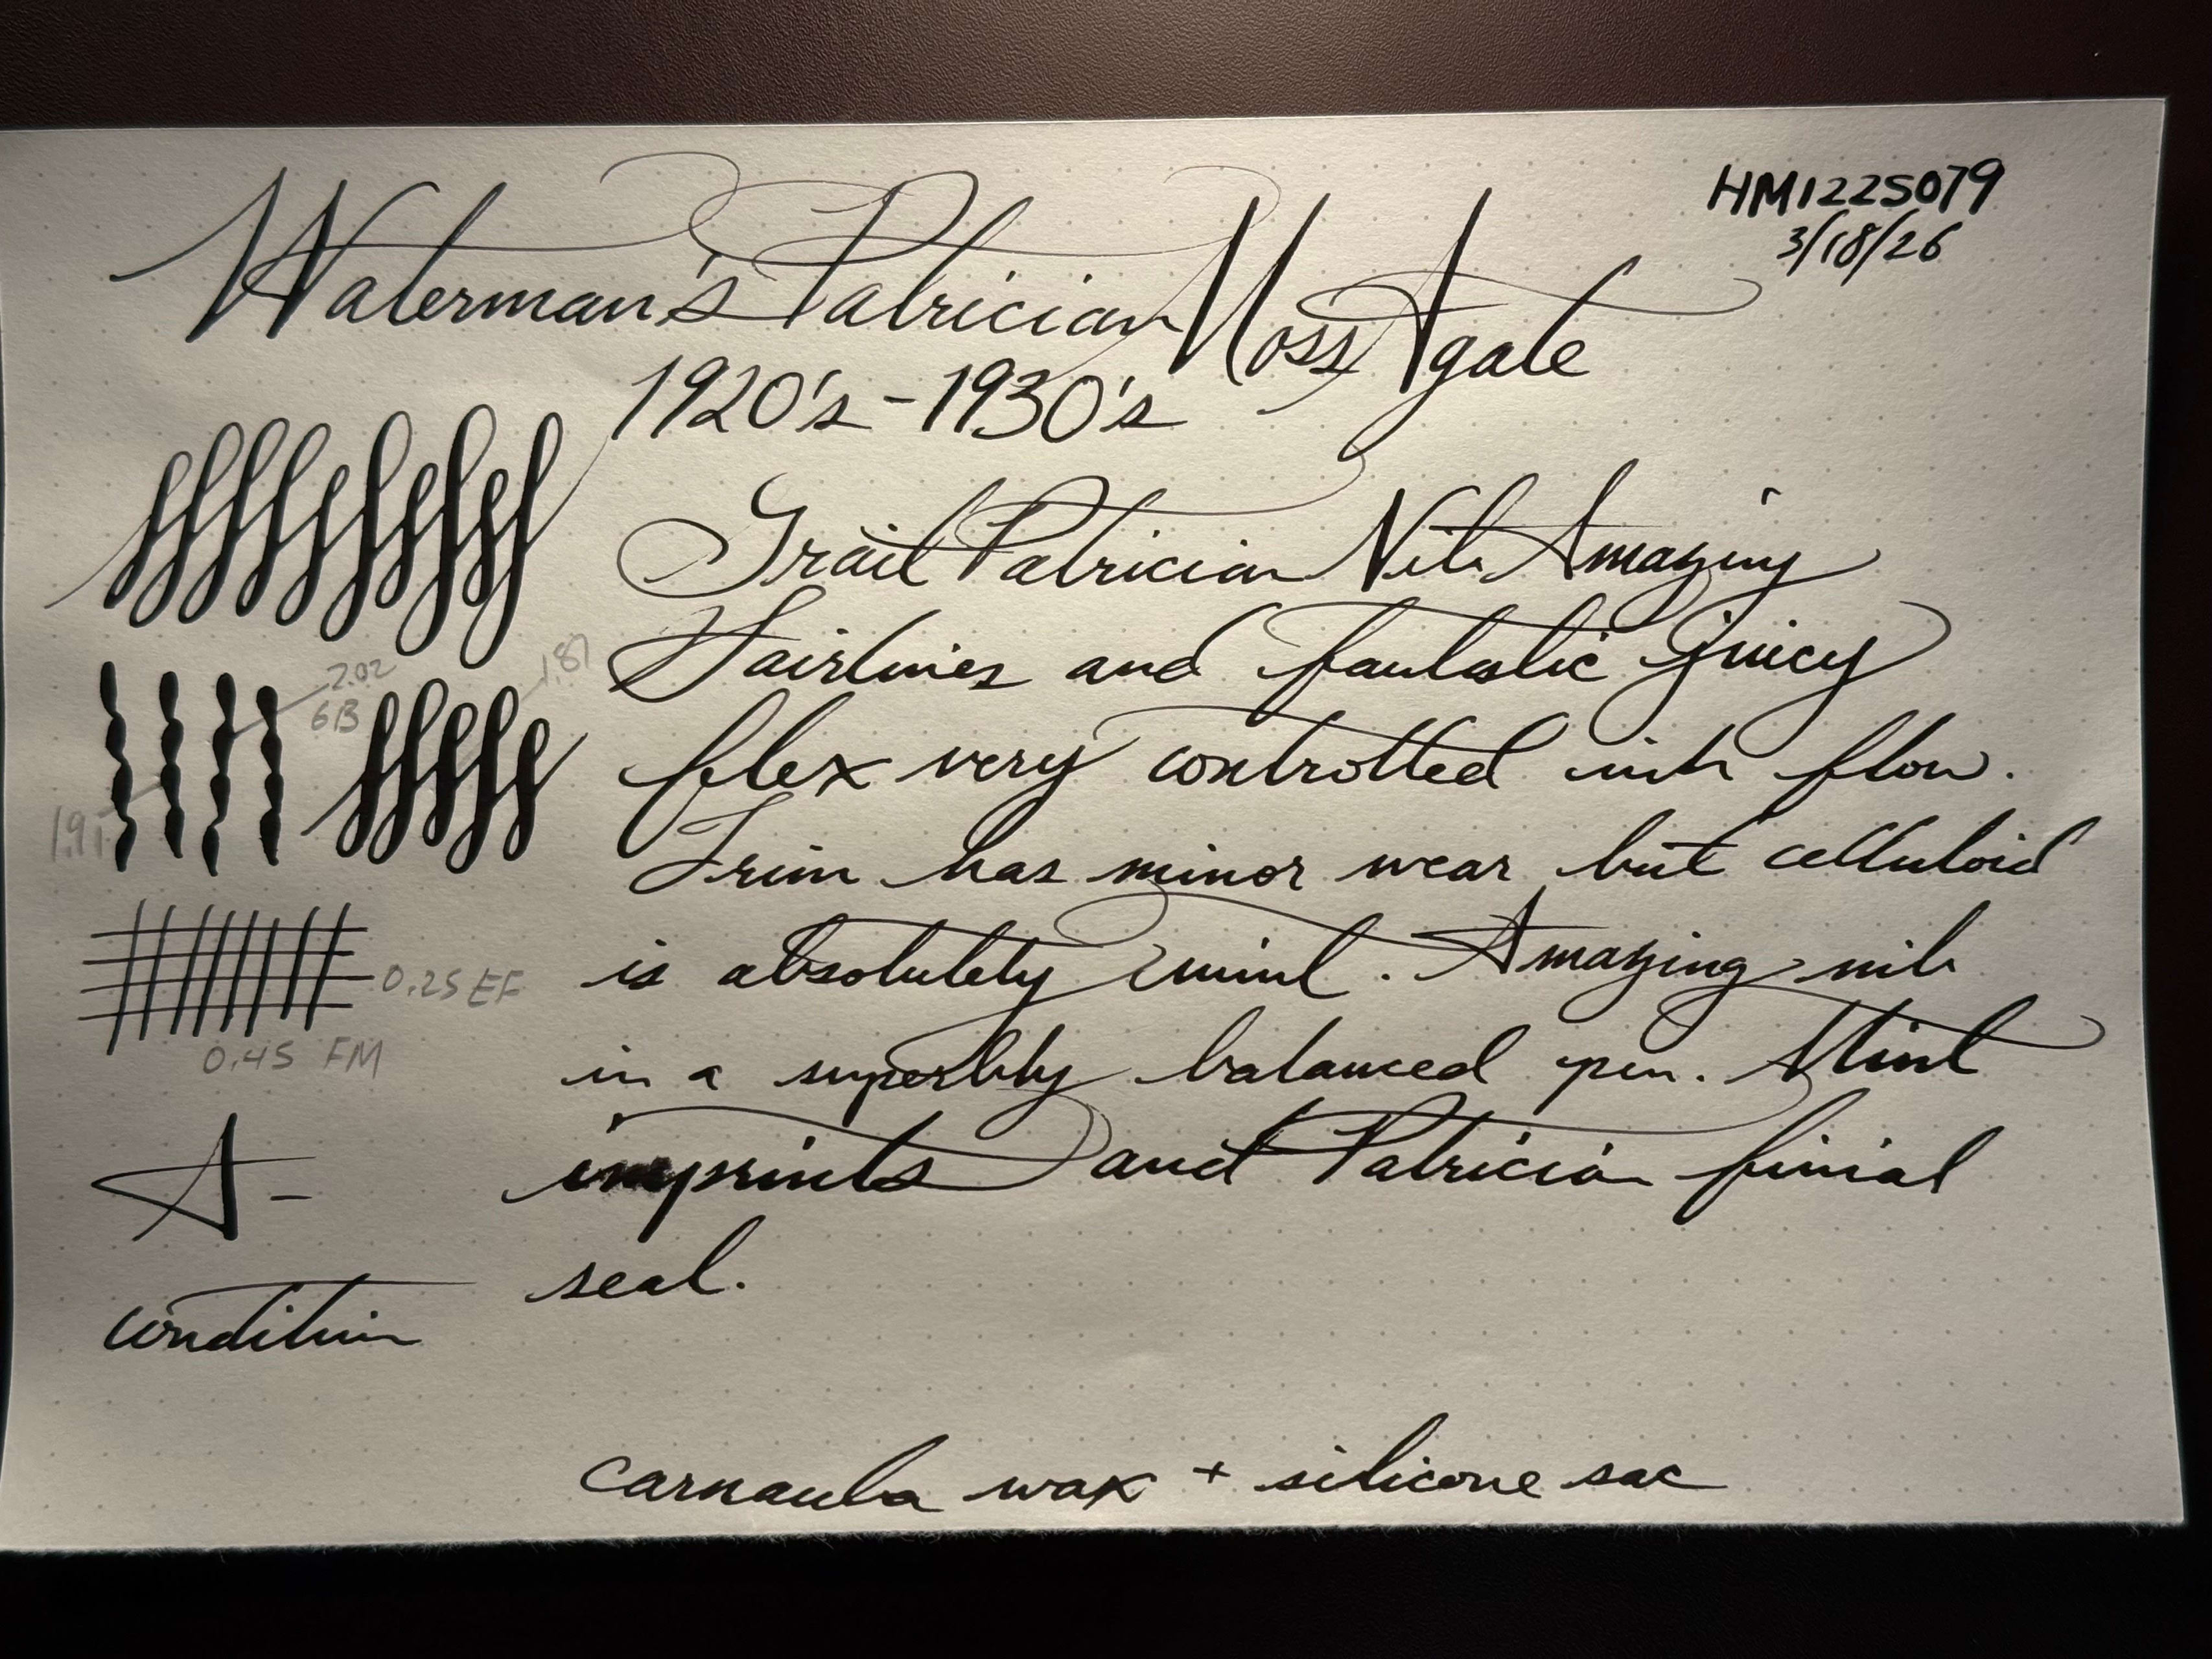 HM1225079
3/18/26
Waterman's Patrician Moss Agate
1920's - 1930's
Grail Patrician Nib Amazing
Hairlines and fantastic juicy
flex very controlled ink flow.
Trim has minor wear but celluloid
is absolutely mint. Amazing nib
in a superbly balanced pen. Mint
imprints and Patrician finial
seal.
2.02
6B
1.87
1.91
0.25 EF
0.45 FM
A-
condition
carnauba wax + silicone sac